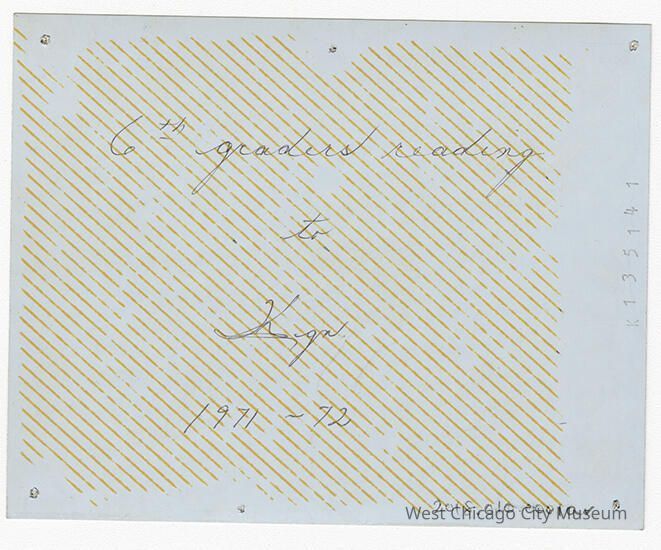 6th graders reading
to
Kgn
1971-72
K135141
West Chicago City Museum